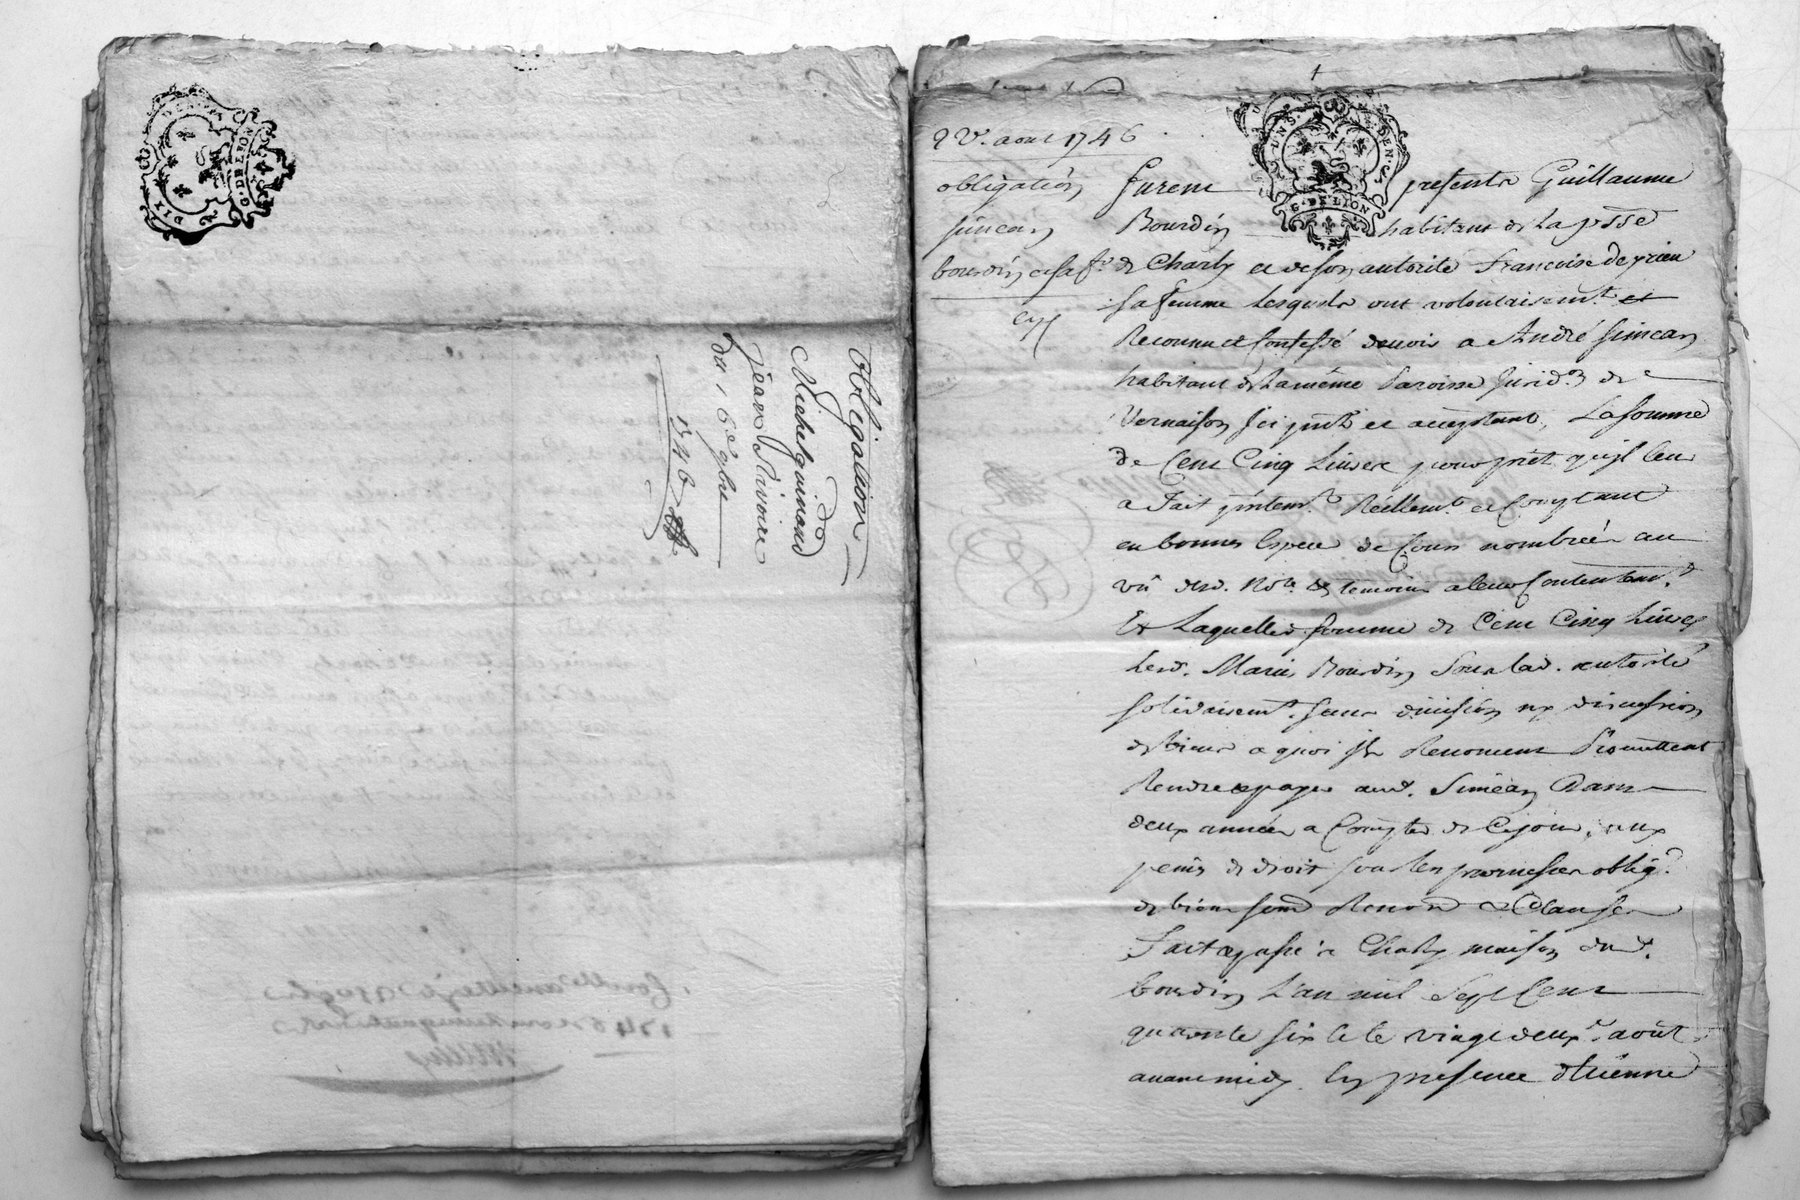 DIX DENIERS
G. DE LION
Obligation
Michel guinand
Jean Rivoire
du 16e 9bre
1746
22e. aout 1746
obligation
simean
bourdin et sa fe
UN S. SIX DEN.
G. DE LION
furent presents Guillaume
Bourdin habitant de La psse
de Charly et de son autorité francoise
sa femme Lesquels ont volontairemt et
Reconnu et Confessé devoir a André simean
habitant de La même Paroisse Jurid.
Vernaison Ici pnt et acceptant, La somme
de Cent Cinq Livres pour pret qu'il leur
a Fait Réellemt et Comptant
en bonnes Espece de Cours nombrées au
vû desd. Nore et temoins a leur Contentemt
Et Laquelle somme de Cent Cinq Livres
Lesd. Mariés Bourdin sous lad. autorité
solidairemt sans division ny discussion
de biens a quoi ils Renoncent Promettent
Rendre et payer aud. Siméan Dans
deux années a Compter de Ce jour, aux
peines de droit par Les promesses oblig.
de biens Renon et Clauses
Fait et passé a Charly maison dud.
bourdin L'an mil Sept Cent
quarente six et le vingt deuxe août
avant midy. En presence d'Etienne